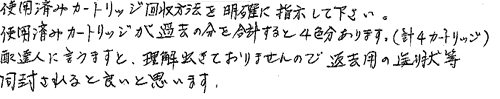 使用済みカートリッジ回収方法を明確に指示して下さい。
使用済みカートリッジが過去の分を合計すると4色分あります。(計4カートリッジ)
配達人に言うますと、理解出きておりませんので返去用の送り状等
同封されると良いと思います。